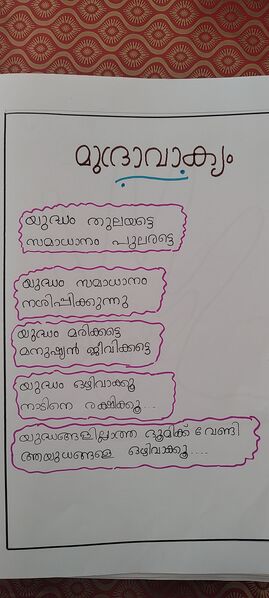 മുദ്രാവാക്യം
യുദ്ധം തുലയട്ടെ
സമാധാനം പുലരട്ടെ
യുദ്ധം സമാധാനം
നശിപ്പിക്കുന്നു
യുദ്ധം മരിക്കട്ടെ
മനുഷ്യൻ ജീവിക്കട്ടെ
യുദ്ധം ഒഴിവാക്കൂ
നാടിനെ രക്ഷിക്കൂ...
യുദ്ധങ്ങളില്ലാത്ത ഭൂമിക്ക് വേണ്ടി
ആയുധങ്ങളെ ഒഴിവാക്കൂ....